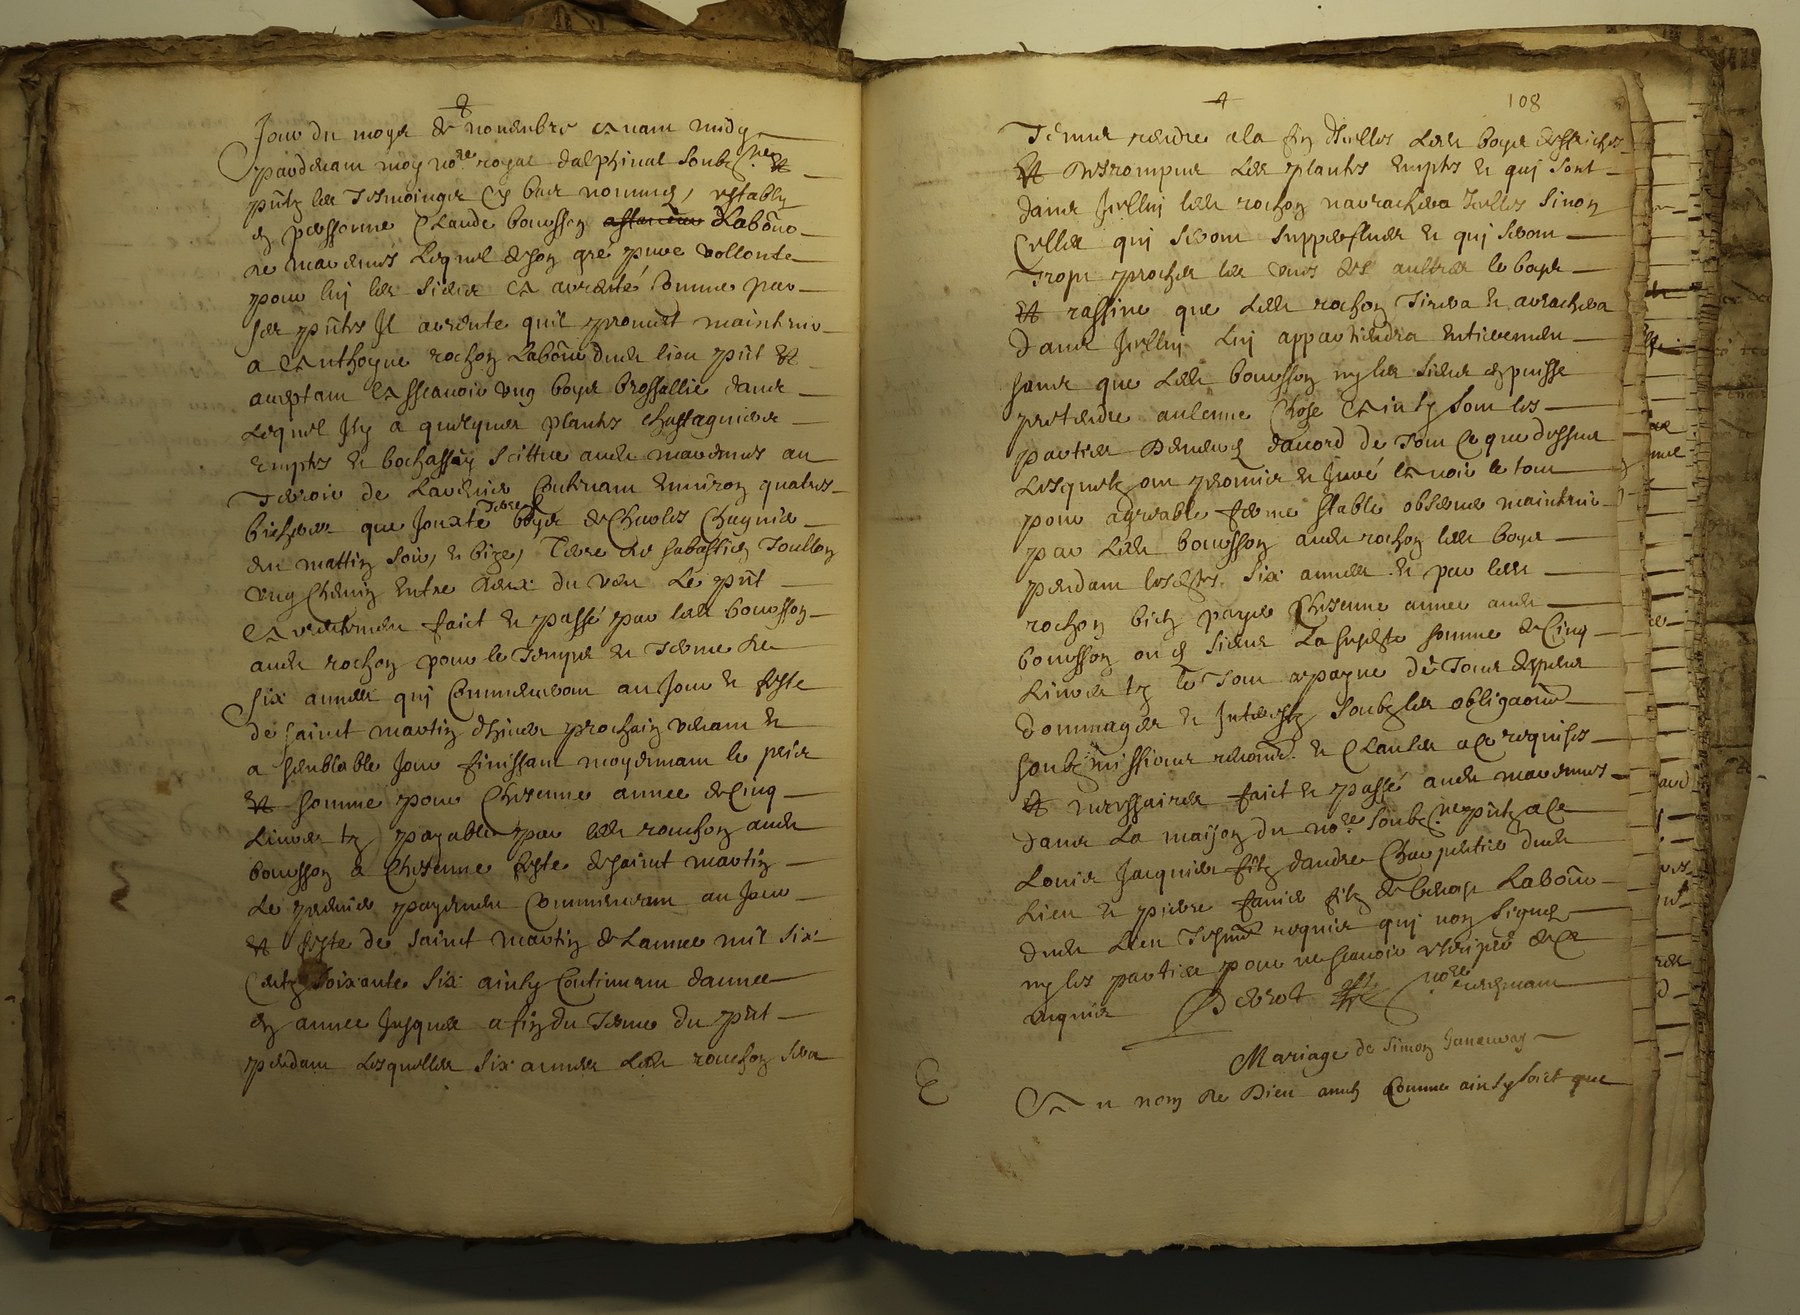 Jour du moys de novembre avant midy
pardevant moy no.re royal dalphinal soubz.ne et
pntz les tesmoingtz cy bas nommes, estably
en personne Claude bouisson Labour
de marennes Lequel de son gre pure vollonte
pour luy les siens a arrenté comme par
ses pntes Il arrente quil promet maintenir
a Anthoyne rochon Labour dudt lieu pnt et
aceptant Assavoir ung boys brossallie dans
Lequel Il y a quelques plants chastagniers
emptes et bochassin scittue audt marennes au
Terroir de Contenant environ quatres
bicherees que Jouxte terre et boys de Charles Chagnie
du mattin soir, et bize, Terre de Sabastien Toullon
ung Chemin entre deux du vent Le pnt
Arrentement faict et passé par ledt bouisson
audt rochon pour le Temps et Terme de
six annees qui Commenceront au Jour et feste
de saint martin dhiver prochain venant et
a semblable Jour finissant moyennant le prix
et somme pour Chescune annee de Cinq
Livres tz payable par ledt rouchon audt
bouisson a Chescune feste de saint martin
Le premier payement Commencant au Jour
et feste de saint martin de Lannee mil six
Centz soixante six ainsy Continuant dannee
en annee Jusques a fin du Terme du pnt
pendant Lesquelles six annees Ledt rouchon sera
108
Tenu rendre a la fin dicelles Ledt boys
et Les plants emptes et qui sont
dans Icelluy ledt rochon narrachera Icelles sinon
Celles qui seront superflues et qui seront
Trop proches les unes des aultres le boys
et rassine que Ledt rochon Tirera et arrachera
dans Icelluy Luy appartiendra entierement
sans que Ledt bouisson ny les siens y puisse
pretendre aulcune Chose Ainsy sont les
parties demeurés daccord de tout Ce que dessus
Lesquels ont promis et Juré Avoir le tout
pour agreable ferme stable observer maintenir
par Ledt bouisson audt rochon ledt boys
pendant lesdtes six annees et par ledt
rochon bien payer Chescune annee audt
bouisson ou es siens La susdte somme de Cinq
Livres tz le tout a payne de Tous despens
dommages et Interestz soubz les obligaons
soubzmissions renonc. et Clauses a ce requises
et necessaires faict et passé audt marennes
dans La maison du no.re soubz.ne pntz a Ce
Louis Jacquier filz dandre Charpentier dudt
Lieu et pierre filz de Labour
dudt Lieu Tesmoins requis qui nont signes
ny les parties pour ne scavoir de Ce
enquis
no.re
Mariage de Simon
Au nom de Dieu amen Comme ainsy soict que